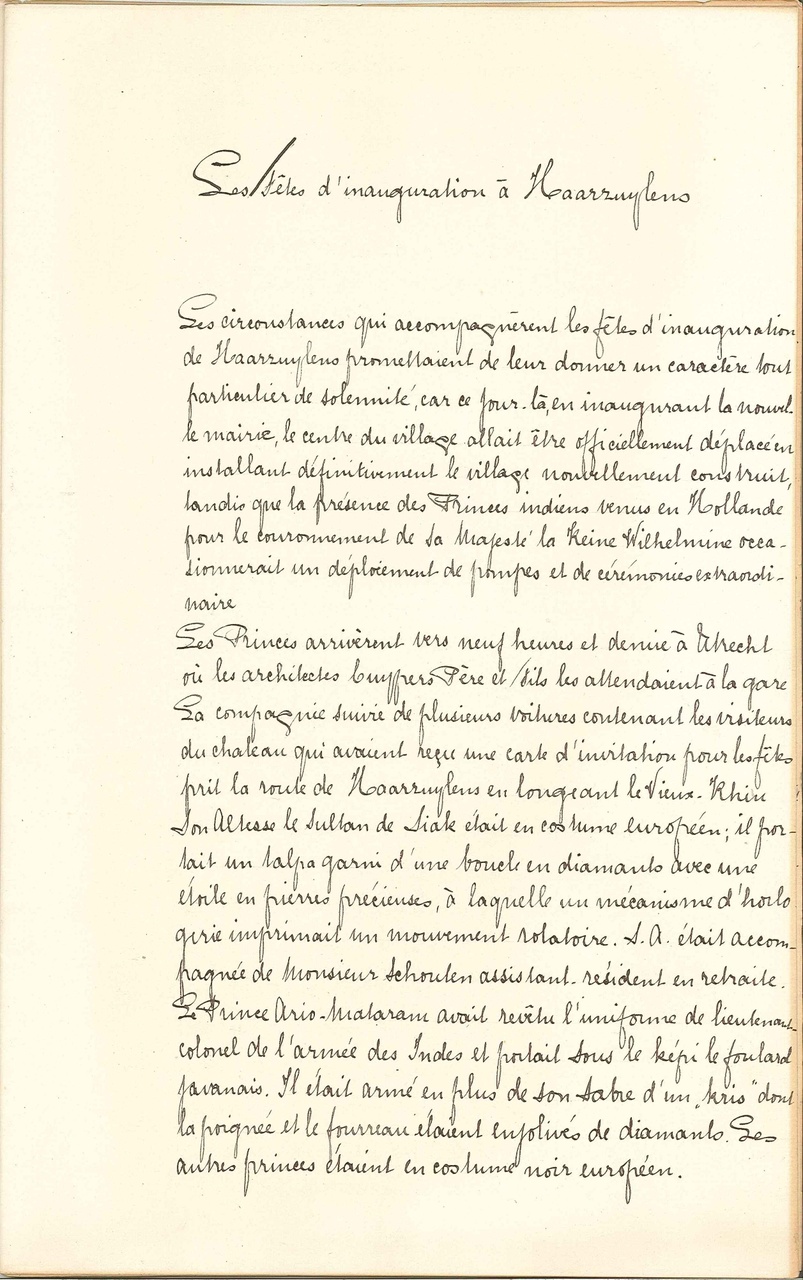 Les Fêtes d'inauguration à Haarzuylens
Les circonstances qui accompagnèrent les fêtes d'inauguration
de Haarzuylens promettaient de leur donner un caractère tout
particulier de solennité, car ce jour-là, en inaugurant la nouvel-
le mairie, le centre du village allait être officiellement déplacé en
installant définitivement le village nouvellement construit,
tandis que la présence des Princes indiens venus en Hollande
pour le couronnement de Sa Majesté la Reine Wilhelmine occa-
sionnerait un déploiement de pompes et de cérémonies extraordi-
naire
Les Princes arrivèrent vers neuf heures et demie à Utrecht
où les architectes Cuypers Père et fils les attendaient à la gare
La compagnie suivie de plusieurs voitures contenant les visiteurs
du chateau qui avaient reçu une carte d'invitation pour les fêtes
prit la route de Haarzuylens en longeant le Vieux-Rhin
Son Altesse le Sultan de Siak était en costume européen; il por-
tait un talpa garni d'une boucle en diamants avec une
étoile en pierres précieuses, à laquelle un mécanisme d'horlo
gerie imprimait un mouvement rotatoire. S. A. était accom-
pagnée de Monsieur Schouten assistant-resident en retraite.
Le Prince Ario-Mataram avait revêtu l'uniforme de lieutenant-
colonel de l'armée des Indes et portait sous le képi le foulard
javanais. Il était armé en plus de son sabre d'un „kris" dont
la poignée et le fourreau étaient enjolivés de diamants. Les
autres princes étaient en costume noir européen.